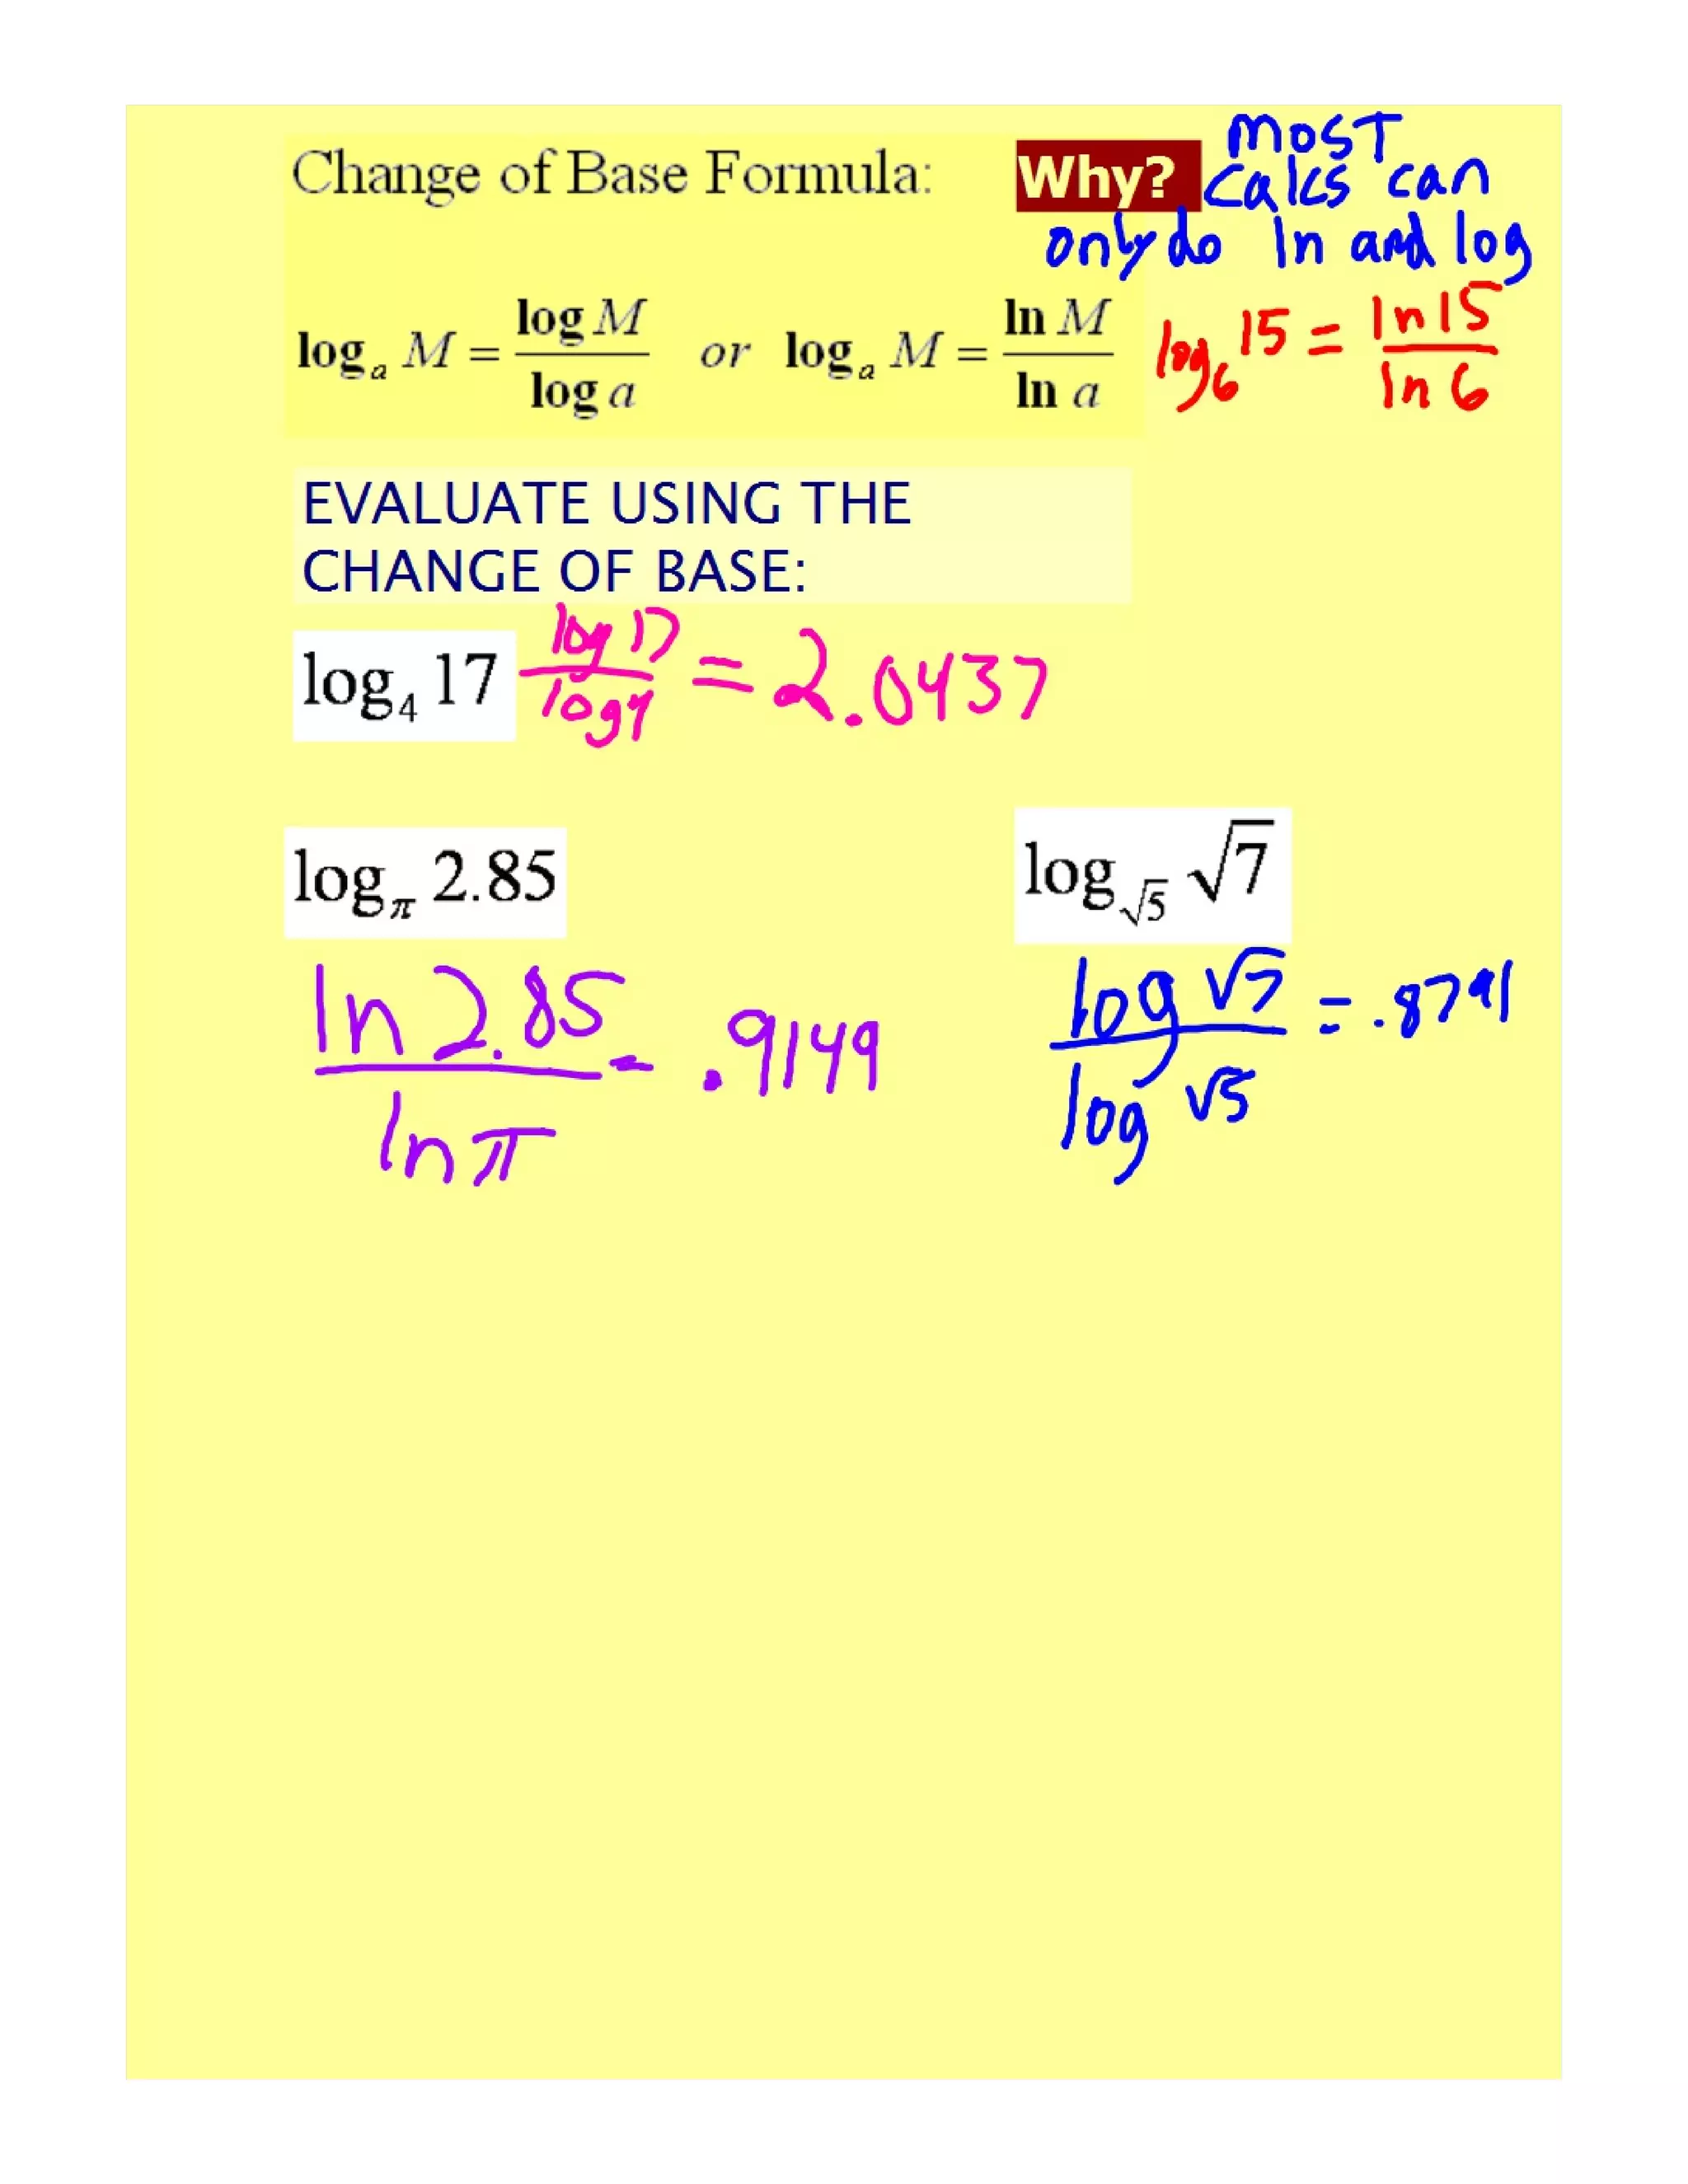 Change of Base Formula: Why? most
calcs can
only do ln and log
log_a M = log M / log a or log_a M = ln M / ln a log_6 15 = ln 15 / ln 6
EVALUATE USING THE
CHANGE OF BASE:
log_4 17 log 17 / log 4 = 2.0437
log_π 2.85 log_√5 √7
ln 2.85 / ln π = .9149 log √7 / log √5 = .8791